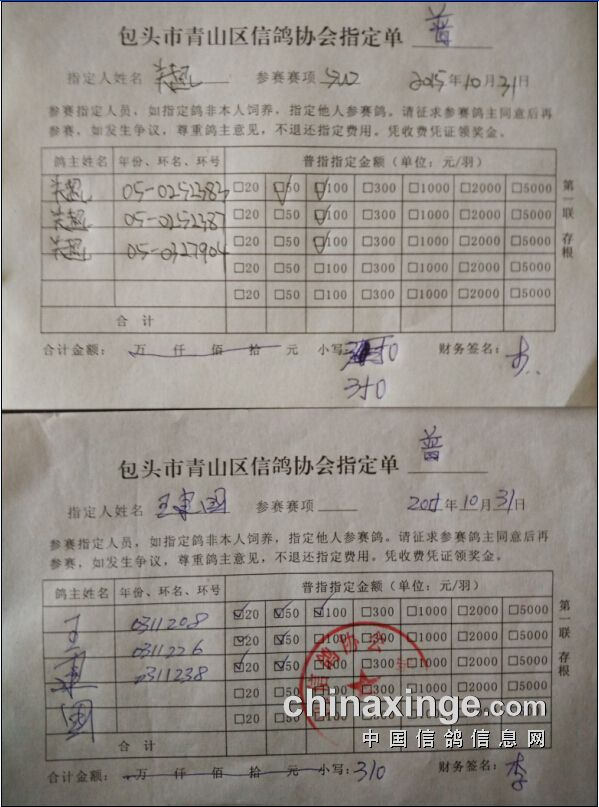 包头市青山区信鸽协会指定单 普
指定人姓名 关超 参赛赛项 500 2015年10月31日
参赛指定人员，如指定鸽非本人饲养，指定他人参赛鸽。请征求参赛鸽主同意后再
参赛，如发生争议，尊重鸽主意见，不退还指定费用。凭收费凭证领奖金。
鸽主姓名 年份、环名、环号 普指指定金额（单位：元/羽）
关超 05-0252383 □20 ☑50 ☑100 □300 □1000 □2000 □5000
关超 05-0252387 □20 □50 ☑100 □300 □1000 □2000 □5000
关超 05-0327904 □20 □50 ☑100 □300 □1000 □2000 □5000
□20 □50 □100 □300 □1000 □2000 □5000
□20 □50 □100 □300 □1000 □2000 □5000
合计
第一联 存根
合计金额： 万 仟 佰 拾 元 小写： 350 财务签名：
350
包头市青山区信鸽协会指定单 普
指定人姓名 王建国 参赛赛项 2015年10月31日
参赛指定人员，如指定鸽非本人饲养，指定他人参赛鸽。请征求参赛鸽主同意后再
参赛，如发生争议，尊重鸽主意见，不退还指定费用。凭收费凭证领奖金。
鸽主姓名 年份、环名、环号 普指指定金额（单位：元/羽）
王建国 0311208 ☑20 ☑50 ☑100 □300 □1000 □2000 □5000
0311226 ☑20 ☑50 □100 □300 □1000 □2000 □5000
0311238 ☑20 ☑50 □100 □300 □1000 □2000 □5000
□20 □50 □100 □300 □1000 □2000 □5000
□20 □50 □100 □300 □1000 □2000 □5000
合计
第一联 存根
信鸽协会
合计金额： 万 仟 佰 拾 元 小写：310 财务签名：李
chinaxinge.com
中国信鸽信息网